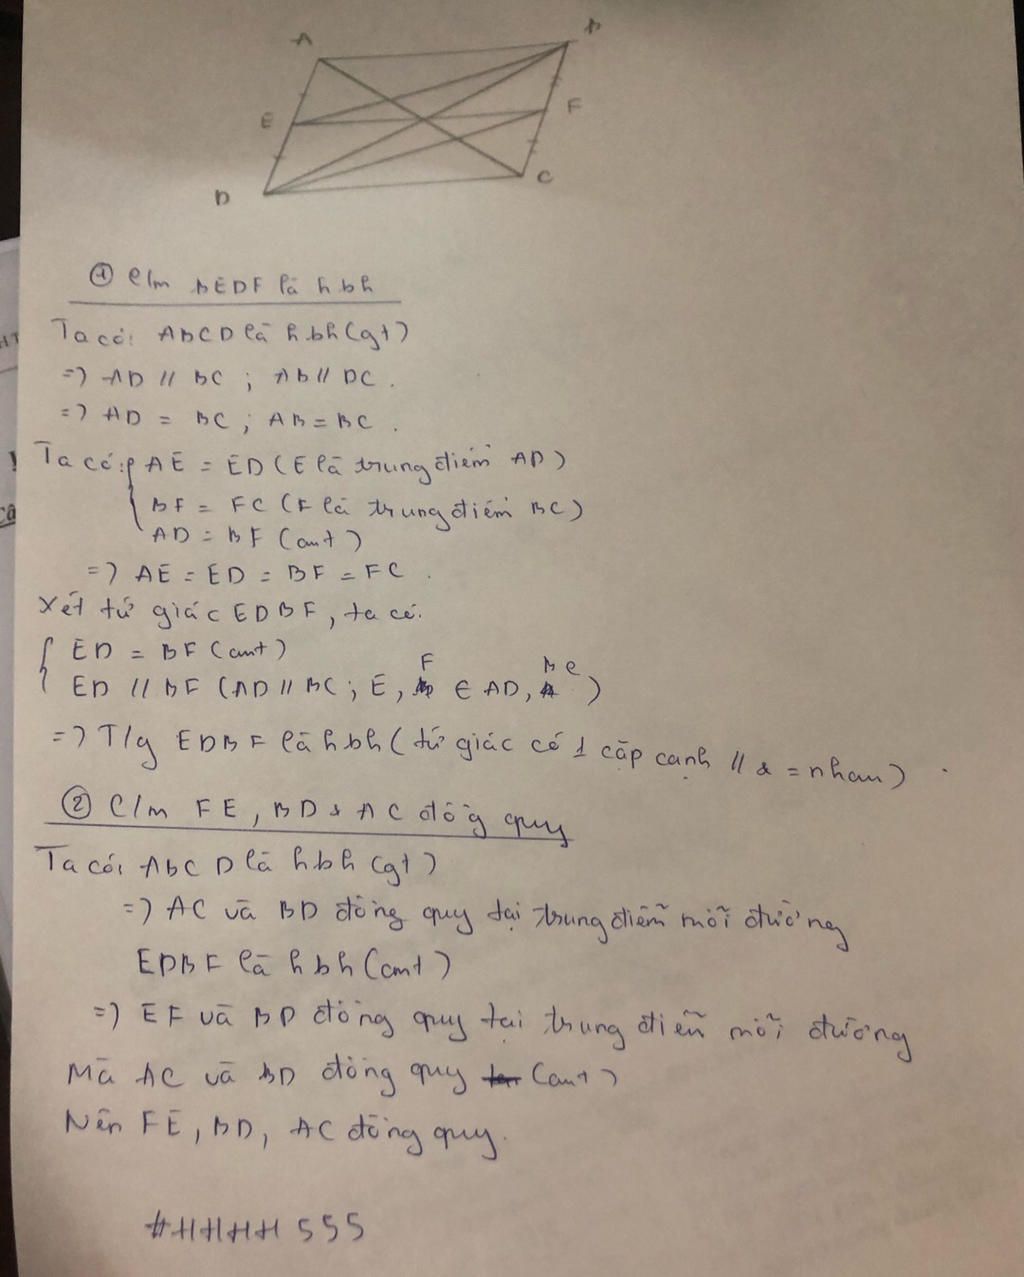 A B
E F
D C
① c/m BEDF là hbh
Ta có: ABCD là hbh (gt)
=> AD // BC ; AB // DC.
=> AD = BC ; AB = BC.
Ta có: { AE = ED (E là trung điểm AD)
BF = FC (F là trung điểm BC)
AD = BF (cmt)
=> AE = ED = BF = FC.
Xét tứ giác EDBF, ta có:
{ ED = BF (cmt)
ED // BF (AD // BC ; E, F ∈ AD, BC)
=> T/g EDBF là hbh (tứ giác có 1 cặp cạnh // & = nhau).
② C/m FE, BD & AC đồng quy
Ta có: ABCD là hbh (gt)
=> AC và BD đồng quy tại trung điểm mỗi đường
EDBF là hbh (cmt)
=> EF và BD đồng quy tại trung điểm mỗi đường
Mà AC và BD đồng quy (cmt)
Nên FE, BD, AC đồng quy.
#HHHH555